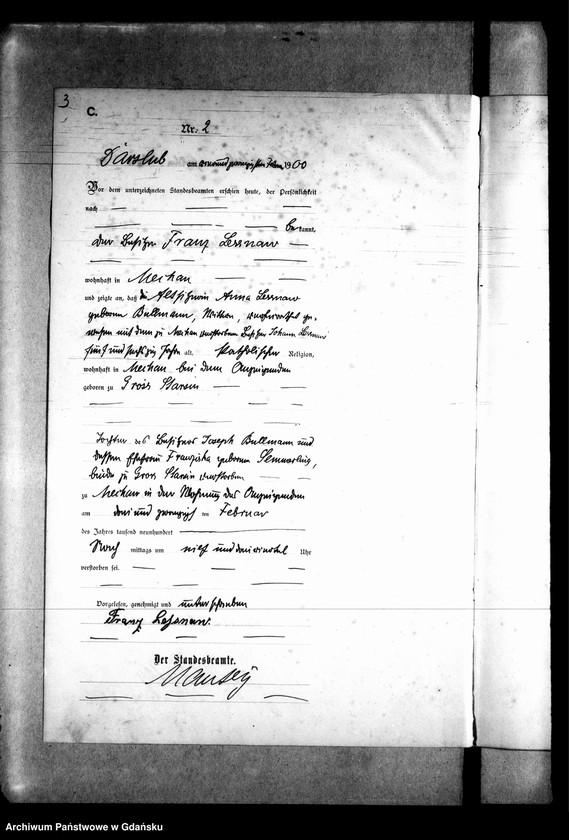 3
C.
Nr. 2
Darslub am vierundzwanzigsten Februar 1900
Vor dem unterzeichneten Standesbeamten erschien heute, der Persönlichkeit
nach
bekannt,
der Besitzer Franz Lessnau
wohnhaft in Mechau
und zeigte an, daß die Altsitzerin Anna Lessnau
geborene Bullmann, Wittwe, verheirathet ge-
wesen mit dem zu Mechau verstorbenen Besitzer Johann Lessnau
fünf und sechszig Jahre alt, katholischer Religion,
wohnhaft in Mechau bei dem Anzeigenden
geboren zu Gross Starsin
Tochter des Besitzers Joseph Bullmann und
dessen Ehefrau Franziska geborenen Semmerling,
beide zu Gross Starsin verstorben
zu Mechau in der Wohnung des Anzeigenden
am drei und zwanzigsten Februar
des Jahres tausend neunhundert
Nach mittags um und drei viertel Uhr
verstorben sei.
Vorgelesen, genehmigt und unterschrieben
Franz Lessnau.
Der Standesbeamte.
Archiwum Państwowe w Gdańsku